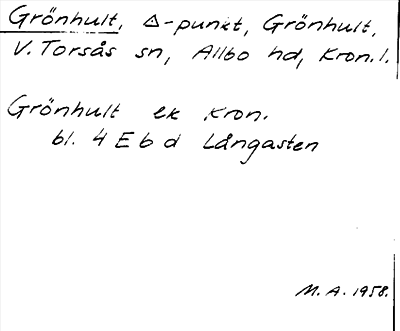 Grönhult, △-punkt, Grönhult,
V. Torsås sn, Allbo hd, Kron. l.
Grönhult ek kron.
bl. 4 E b d Långasten
M. A. 1958.